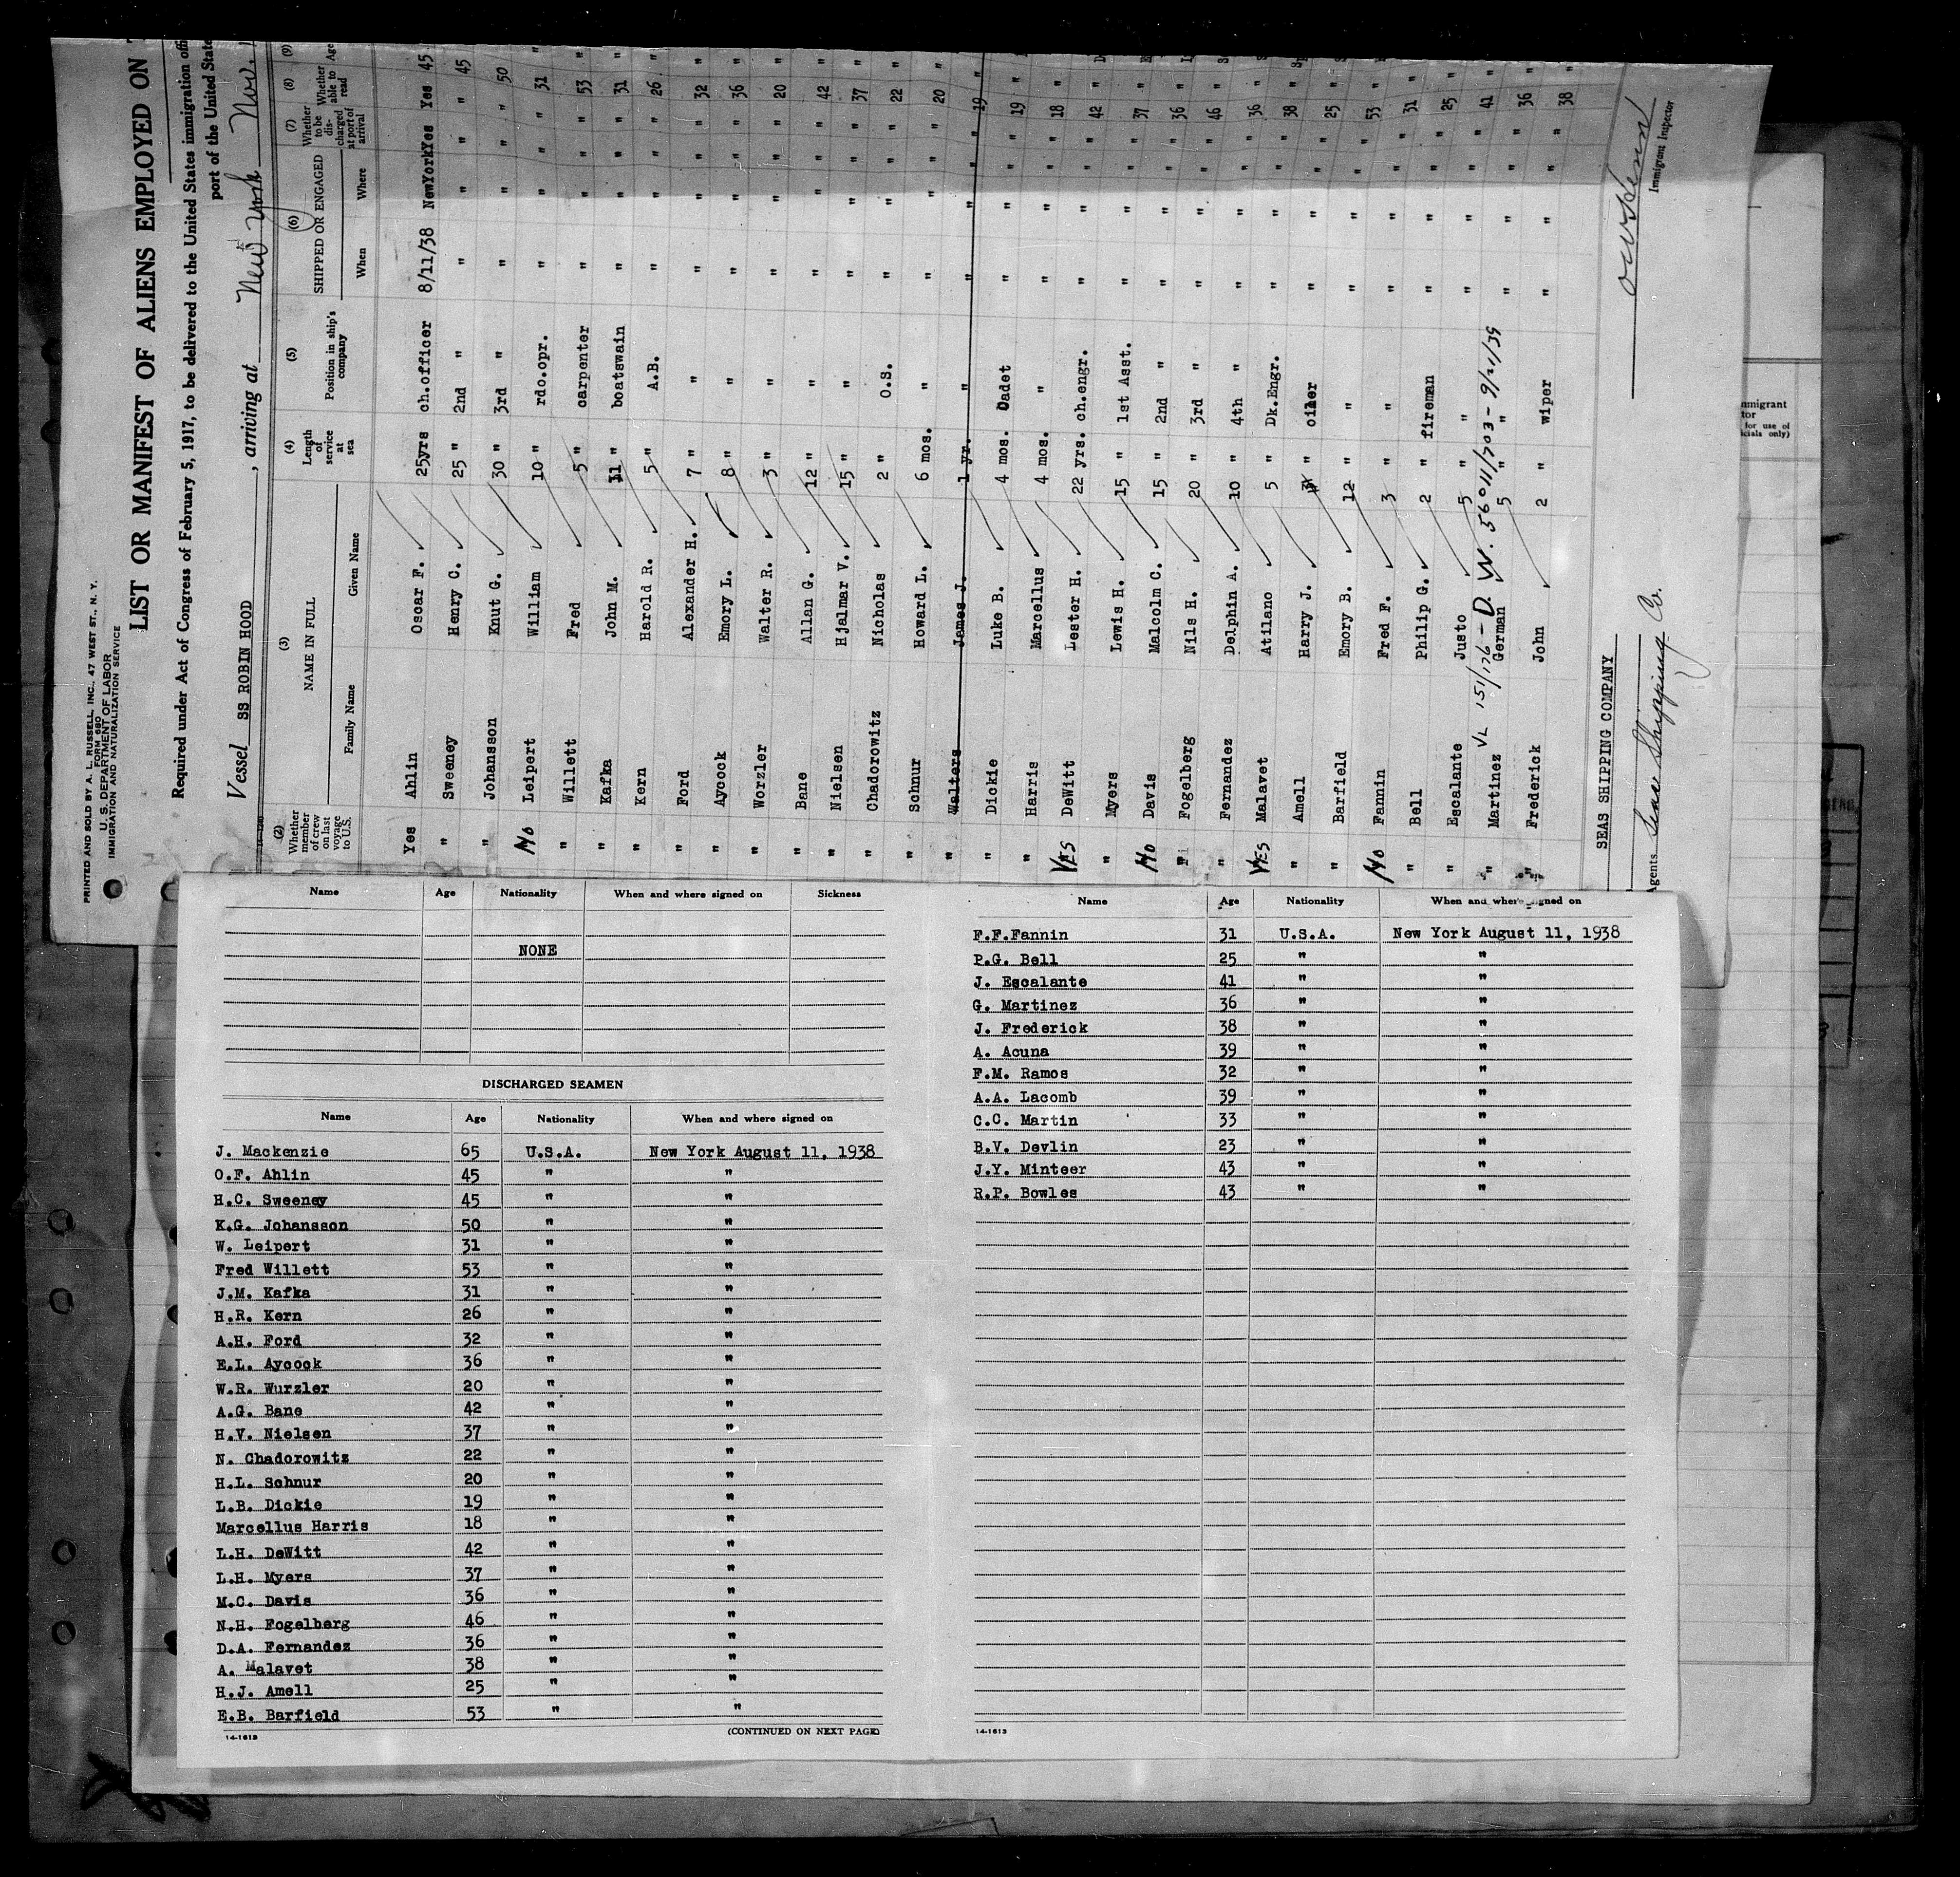 PRINTED AND SOLD BY A. L. RUSSELL, INC., 47 WEST ST., N. Y.
FORM 680
U. S. DEPARTMENT OF LABOR
IMMIGRATION AND NATURALIZATION SERVICE
LIST OR MANIFEST OF ALIENS EMPLOYED ON
Required under Act of Congress of February 5, 1917, to be delivered to the United States immigration
port of the United State
Vessel SS ROBIN HOOD, arriving at New York Nov.
(2) Whether member of crew on last voyage to U.S.
(3) NAME IN FULL
Family Name Given Name
(4) Length of service at sea
(5) Position in ship's company
(6) SHIPPED OR ENGAGED
When Where
(7) Whether to be discharged at port of arrival
(8) Whether able to read
(9) Age
Yes Ahlin Oscar F. 25yrs ch.officer 8/11/38 NewYork Yes Yes 45
" Sweeney Henry C. 25 " 2nd " " " " " 45
" Johansson Knut G. 30 " 3rd " " " " " 50
No Leipert William 10 " rdo.opr. " " " " 31
" Willett Fred 5 " carpenter " " " " 53
" Kafka John M. 11 " boatswain " " " " 31
" Kern Harold R. 5 " A.B. " " " " 26
" Ford Alexander H. 7 " " " " " " 32
" Aycock Emory L. 8 " " " " " " 36
" Worzler Walter R. 3 " " " " " " 20
" Bane Allan G. 12 " " " " " " 42
" Nielsen Hjalmar V. 15 " " " " " " 37
" Chadorowitz Nicholas 2 " O.S. " " " " 22
" Schnur Howard L. 6 mos. " " " " " 20
" Walters James J. 1 yr. " " " " " 19
" Dickie Luke B. 4 mos. Cadet " " " " 19
" Harris Marcellus 4 mos. " " " " " 18
YES DeWitt Lester H. 22 yrs. ch.engr. " " " " 42
" Myers Lewis H. 15 " 1st Asst. " " " " 37
No Davis Malcolm C. 15 " 2nd " " " " " 36
" Fogelberg Nils H. 20 " 3rd " " " " " 46
" Fernandez Delphin A. 10 " 4th " " " " " 36
YES Malavet Atilano 5 " Dk.Engr. " " " " 38
" Amell Harry J. " oiler " " " " 25
" Barfield Emory B. 12 " " " " " " 53
No Fannin Fred F. 3 " " " " " " 31
" Bell Philip G. 2 " fireman " " " " 25
" Escalante Justo 5 " " " " " " 41
VL 151/176 - D. W. 56011/703 - 9/21/39
" Martinez German 5 " " " " " " 36
" Frederick John 2 " wiper " " " " 38
SEAS SHIPPING COMPANY
Agents Seas Shipping Co.
Immigrant Inspector
mmigrant
tor
for use of
icials only)
Name Age Nationality When and where signed on Sickness
NONE
DISCHARGED SEAMEN
Name Age Nationality When and where signed on
J. Mackenzie 65 U.S.A. New York August 11, 1938
O.F. Ahlin 45 " "
H.C. Sweeney 45 " "
K.G. Johansson 50 " "
W. Leipert 31 " "
Fred Willett 53 " "
J.M. Kafka 31 " "
H.R. Kern 26 " "
A.H. Ford 32 " "
E.L. Aycock 36 " "
W.R. Wurzler 20 " "
A.G. Bane 42 " "
H.V. Nielsen 37 " "
N. Chadorowitz 22 " "
H.L. Schnur 20 " "
L.B. Dickie 19 " "
Marcellus Harris 18 " "
L.H. DeWitt 42 " "
L.H. Myers 37 " "
M.C. Davis 36 " "
N.H. Fogelberg 46 " "
D.A. Fernandez 36 " "
A. Malavet 38 " "
H.J. Amell 25 " "
E.B. Barfield 53 " "
14-1613 (CONTINUED ON NEXT PAGE)
Name Age Nationality When and where signed on
F.F.Fannin 31 U.S.A. New York August 11, 1938
P.G. Bell 25 " "
J. Escalante 41 " "
G. Martinez 36 " "
J. Frederick 38 " "
A. Acuna 39 " "
F.M. Ramos 32 " "
A.A. Lacomb 39 " "
C.C. Martin 33 " "
B.V. Devlin 23 " "
J.Y. Minteer 43 " "
R.P. Bowles 43 " "
14-1613